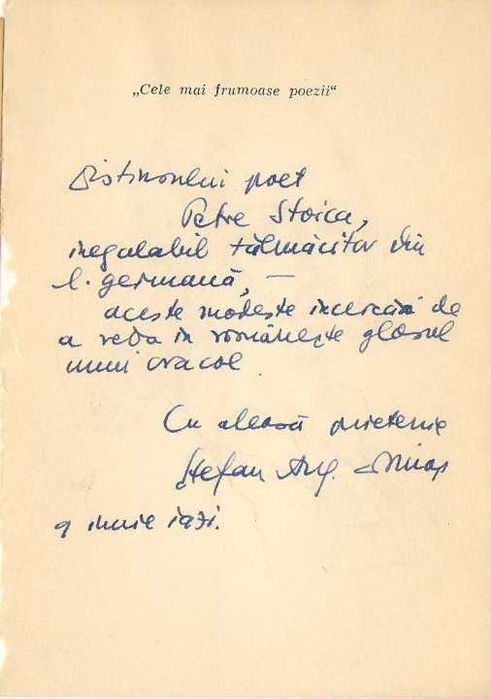 „Cele mai frumoase poezii“
Distinsului poet
Petre Stoica,
inegalabil tălmăcitor din
l. germană, —
aceste modeste încercări de
a reda în românește glasul
unui oracol
Cu aleasă prietenie
Ștefan Aug. Doinaș
9 iunie 1971.